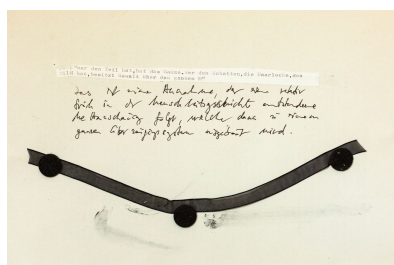 "wer den Teil hat,hat das Ganze,wer den Schatten,die das
Bild hat,besitzt Gewalt über den ganzen M"
das ist eine Annahme, der eine relativ
früh in der Menschheitsgeschichte entstandene
Anschauung folgt, welche dann zu einem
ganzen Überzeugungssystem ausgebaut wird.